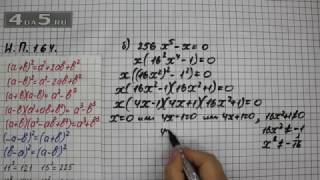 4DA5.RU
Н.П. 164.
(a+b)²=a²+2ab+b²
(a-b)²=a²-2ab+b²
(a+b)(a-b)=a²-b²
(a-b)(a²+ab+b²)=a³-b³
(a+b)(a²-ab+b²)=a³+b³
(-a-b)²=(a+b)²
(b-a)²=(a-b)²
11²=121 15²=225
б) 256x⁵-x=0
x(16²x⁴-1)=0
x((16x²)²-1²)=0
x(16x²-1)(16x²+1)=0
x(4x-1)(4x+1)(16x²+1)=0
x=0 или 4x-1=0 или 4x+1=0, 16x²+1≠0
16x²≠-1